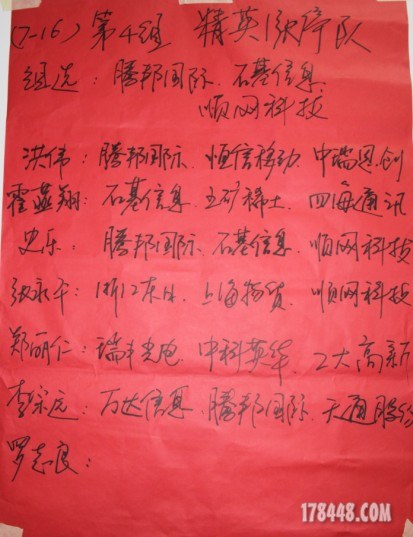 (7-16) 第4组 精英决策队
组选: 腾邦国际、石基信息、
顺网科技
洪伟: 腾邦国际、恒信移动、中瑞思创
霍益翔: 石基信息、五矿稀土、四海通讯
史乐: 腾邦国际、石基信息、顺网科技
张永平: 浙江东日、上海物贸、顺网科技
郑丽仁: 瑞丰光电 中科英华、工大高新
李宗远: 万达信息 腾邦国际、天通股份
罗志良:
178448.COM